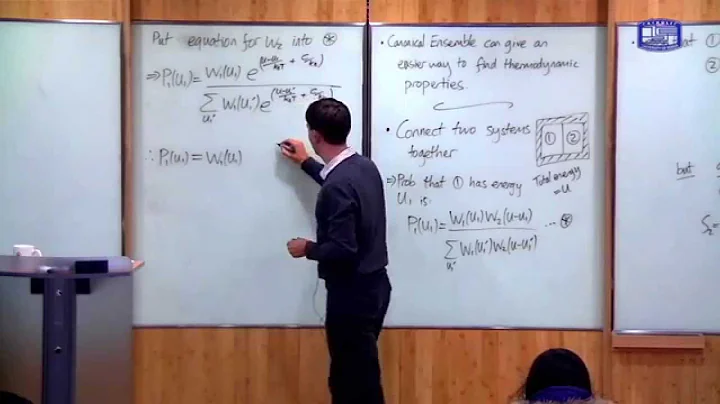 Put equation for W₂ into ⊛
⇒ P₁(U₁) = W₁(U₁) e^(
∑ W₁(U₁′) e^(
U₁′
∴ P₁(U₁) = W₁(U₁)
• Canonical Ensemble can give an
easier way to find thermodynamic
properties.
• Connect two systems
together
① ②
Total energy
= U
⇒ Prob that ① has energy
U₁ is:
P₁(U₁) = W₁(U₁) W₂(U-U₁) ... ⊛
∑ W₁(U₁′) W₂(U-U₁′)
U₁′
①
②
but
S₂ =